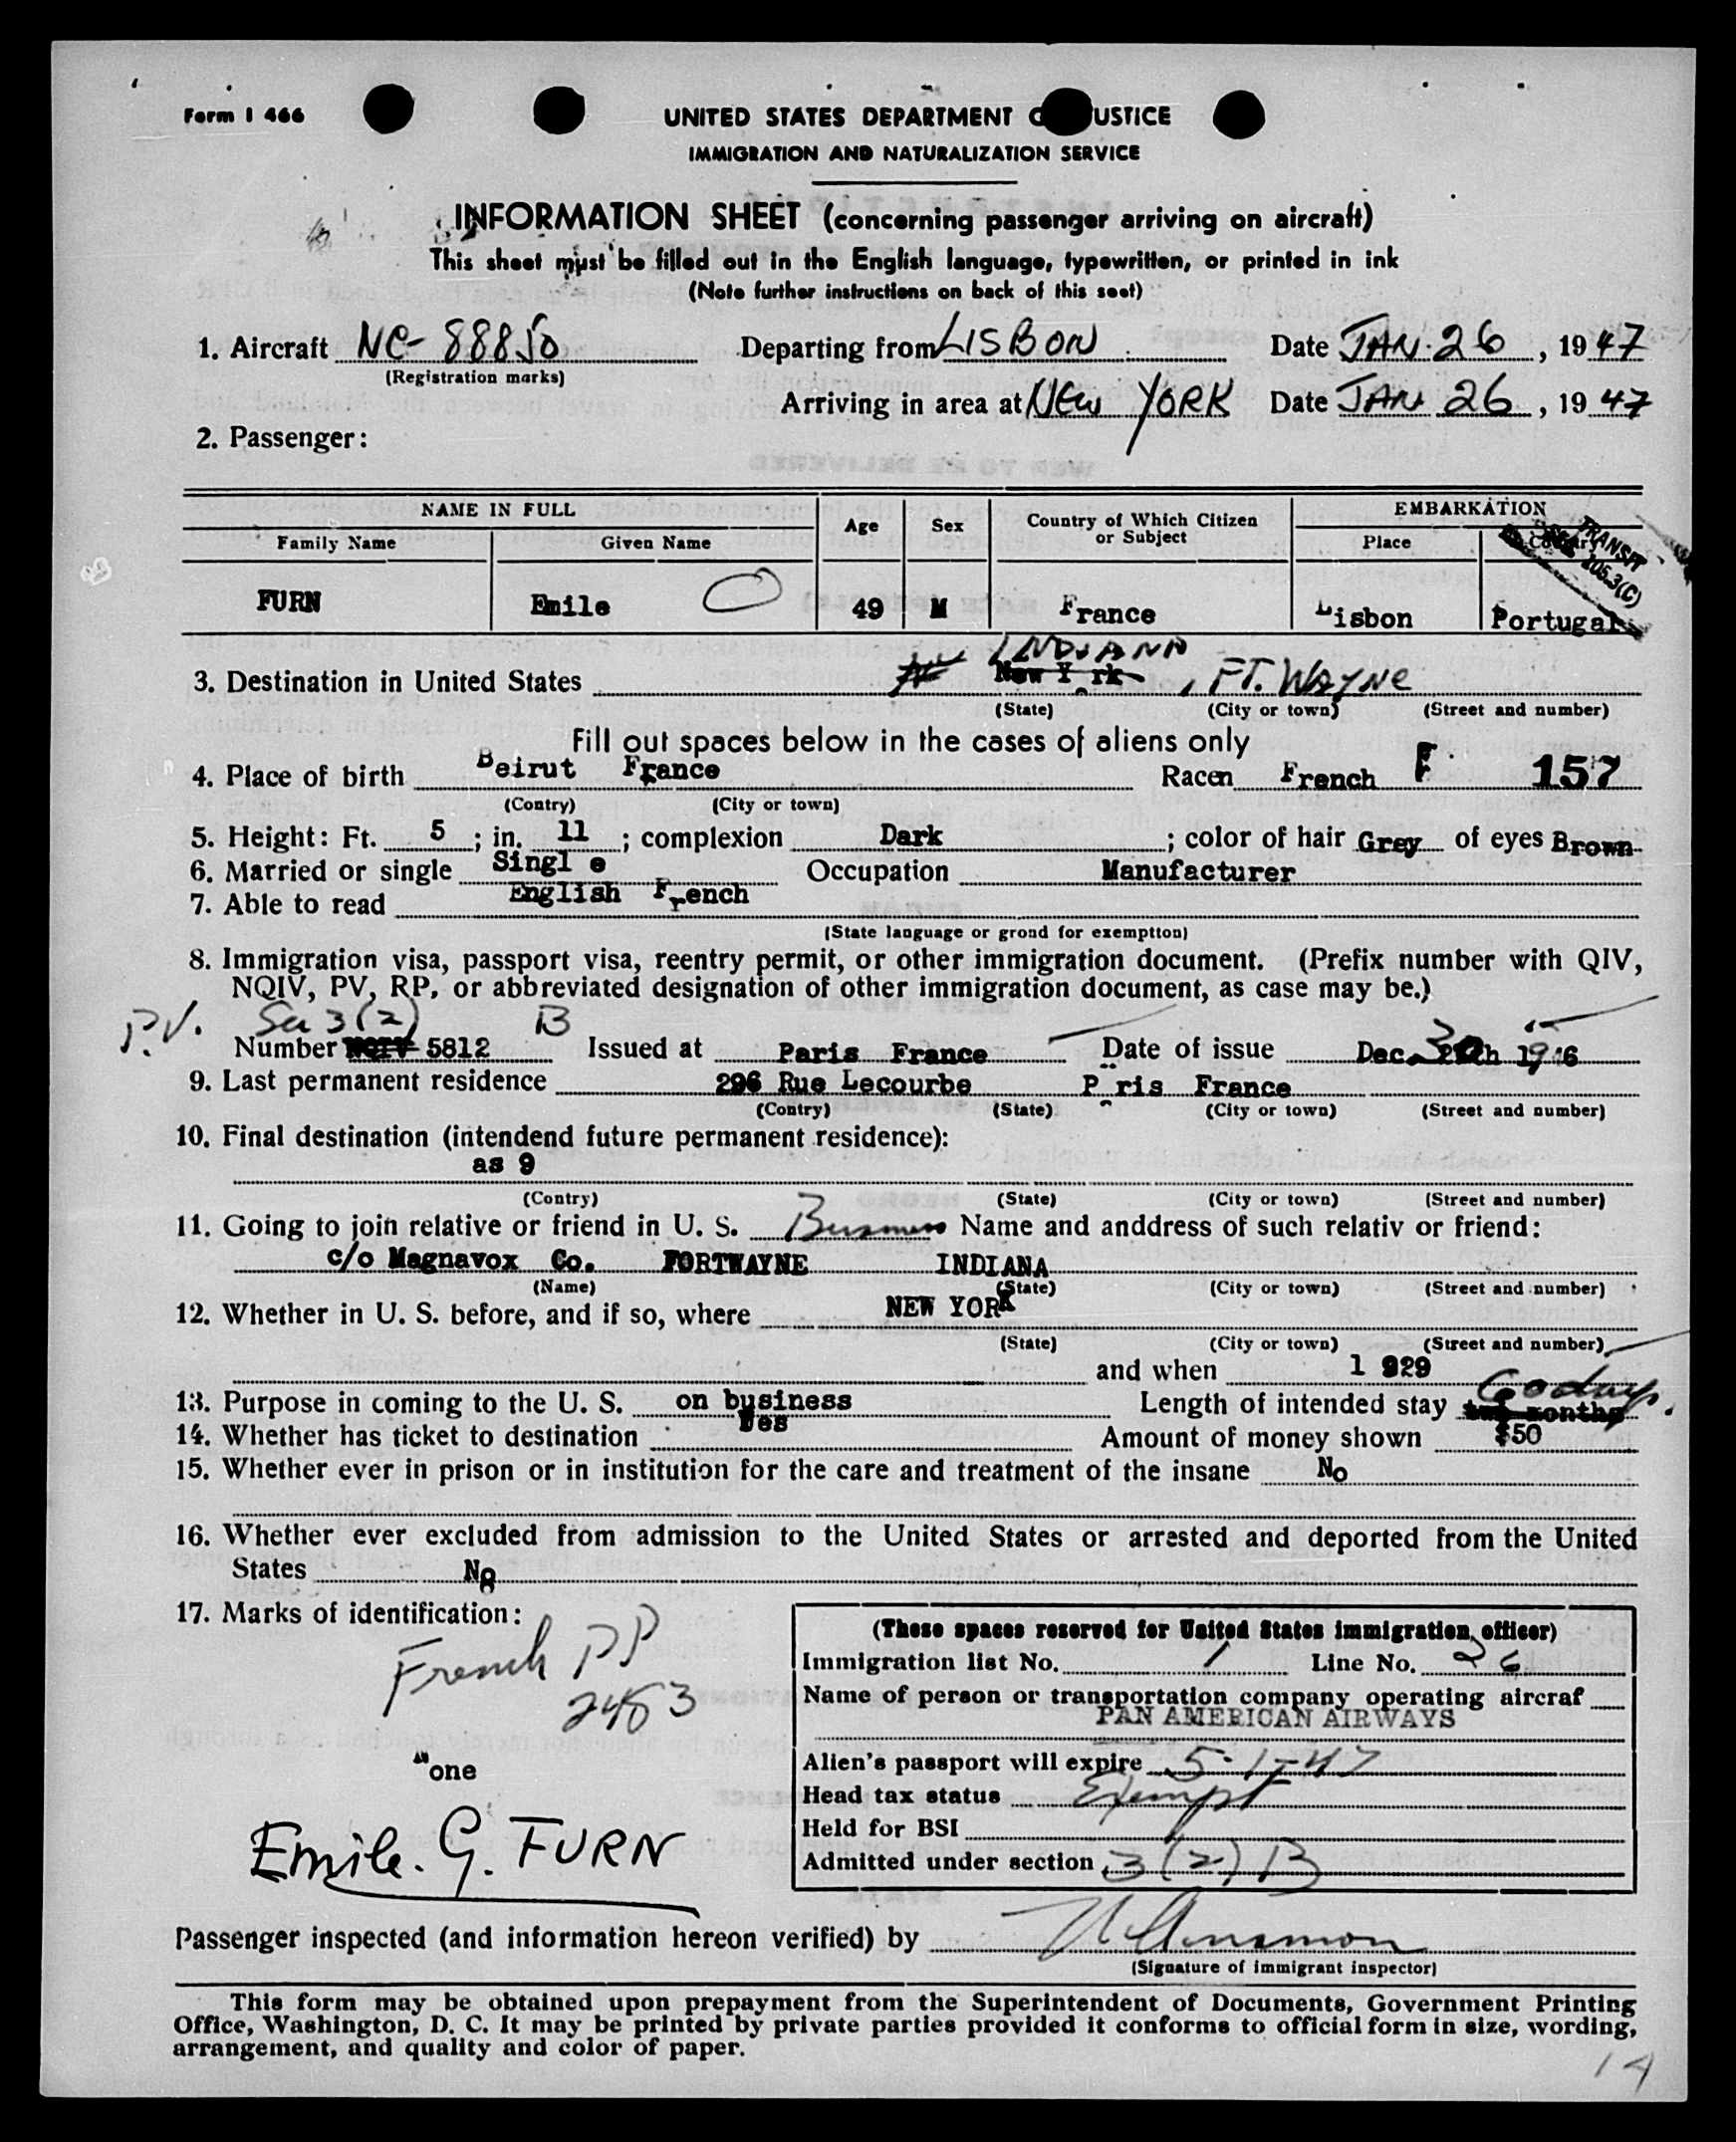 Form I 466
UNITED STATES DEPARTMENT O USTICE
IMMIGRATION AND NATURALIZATION SERVICE
INFORMATION SHEET (concerning passenger arriving on aircraft)
This sheet must be filled out in the English language, typewritten, or printed in ink
(Note further instructions on back of this seet)
1. Aircraft NC- 88850 Departing from LISBON Date JAN. 26, 1947
(Registration marks)
Arriving in area at NEW YORK Date JAN 26, 1947
2. Passenger:
NAME IN FULL Age Sex Country of Which Citizen or Subject EMBARKATION
Family Name Given Name Place
TRANSIT
FURN Emile 49 M France Lisbon Portugal
INDIANA
3. Destination in United States New Y rk, FT. WAYNE
(State) (City or town) (Street and number)
Fill out spaces below in the cases of aliens only
4. Place of birth Beirut France Racen French F 157
(Contry) (City or town)
5. Height: Ft. 5; in. 11; complexion Dark; color of hair Grey of eyes Brown
6. Married or single Singl e Occupation Manufacturer
7. Able to read English French
(State language or grond for exemption)
8. Immigration visa, passport visa, reentry permit, or other immigration document. (Prefix number with QIV,
NQIV, PV, RP, or abbreviated designation of other immigration document, as case may be.)
P.V. 3(2) B
Number NQIV 5812 Issued at Paris France Date of issue Dec. 30
9. Last permanent residence 296 Rue Lecourbe P ris France
(Contry) (State) (City or town) (Street and number)
10. Final destination (intendend future permanent residence):
as 9
(Contry) (State) (City or town) (Street and number)
11. Going to join relative or friend in U. S. Business Name and anddress of such relativ or friend:
c/o Magnavox Co. FORTWAYNE INDIANA
(Name) (State) (City or town) (Street and number)
12. Whether in U. S. before, and if so, where NEW YORK
(State) (City or town) (Street and number)
and when 1 929
13. Purpose in coming to the U. S. on business Length of intended stay 60 days.
14. Whether has ticket to destination Yes Amount of money shown $50
15. Whether ever in prison or in institution for the care and treatment of the insane No
16. Whether ever excluded from admission to the United States or arrested and deported from the United
States No
17. Marks of identification:
French PP
2453
None
Emile. G. FURN
(These spaces reserved for United States immigration officer)
Immigration list No. 1 Line No. 26
Name of person or transportation company operating aircraf
PAN AMERICAN AIRWAYS
Alien's passport will expire 5-1-47
Head tax status Exempt
Held for BSI
Admitted under section 3(2) B
Passenger inspected (and information hereon verified) by
(Signature of immigrant inspector)
This form may be obtained upon prepayment from the Superintendent of Documents, Government Printing
Office, Washington, D. C. It may be printed by private parties provided it conforms to official form in size, wording,
arrangement, and quality and color of paper.
14